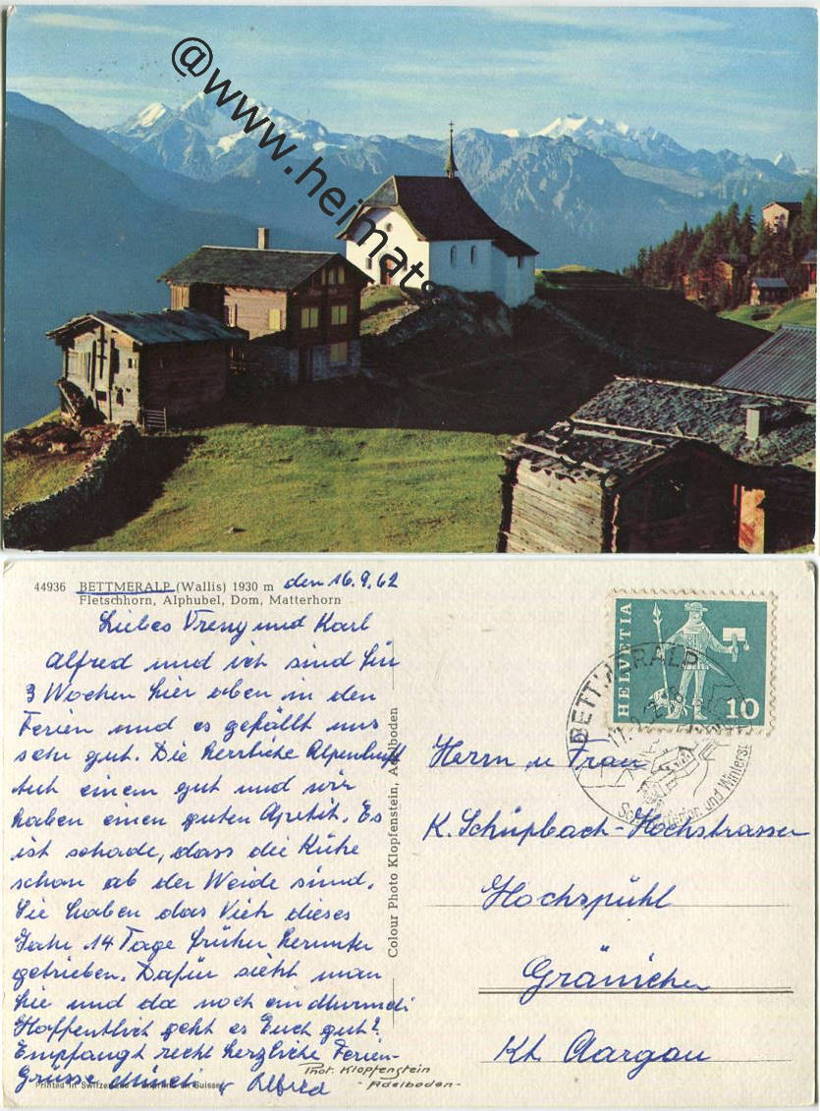 @www.heimat
44936 BETTMERALP (Wallis) 1930 m den 16.9.62
Fletschhorn, Alphubel, Dom, Matterhorn
Liebes Vreny und Karl
Alfred und ich sind für
3 Wochen hier oben in den
Ferien und es gefällt uns
sehr gut. Die herrliche Alpenluft
tut einem gut und wir
haben einen guten Apetit. Es
ist schade, dass die Kühe
schon ab der Weide sind.
Sie haben das Vieh dieses
Jahr 14 Tage früher herunter
getrieben. Dafür sieht man
hie und da noch ein
Hoffentlich geht es Euch gut?
Empfangt recht herzliche Ferien-
Grüsse Alfred
Printed in Switzerland
Phot. Klopfenstein
- Adelboden -
Colour Photo Klopfenstein, Adelboden
HELVETIA
10
BETTMERALP
17.9.62-18
Sommerferien und Winterst
Herrn u Frau
K. Schüpbach-Hochstrasser
Hochspühl
Gränichen
Kt. Aargau